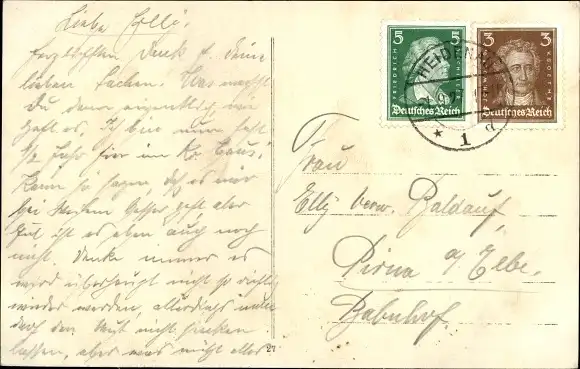 Liebe Elli!
herzlichsten Dank f. deine
lieben Sachen. Was machst
du denn eigentlich, wie
geht es. Ich bin nun fast
1/2 Jahr hier im Kr. Haus.
Kann ja sagen, daß es mir
bei besser geht aber
gut ist es eben auch noch
nicht. Denke immer es
wird überhaupt nicht so richtig
wieder werden, allerdings man
darf den Mut nicht sinken
lassen, aber was nützt alles
27
5 5
FRIEDRICH
SCHILLER
Deutsches Reich
3 3
GOETHE
Deutsches Reich
HEIDENAU
* 1 d
Frau
Elly verw. Baldauf,
Pirna a/Elbe.
Bahnhof.